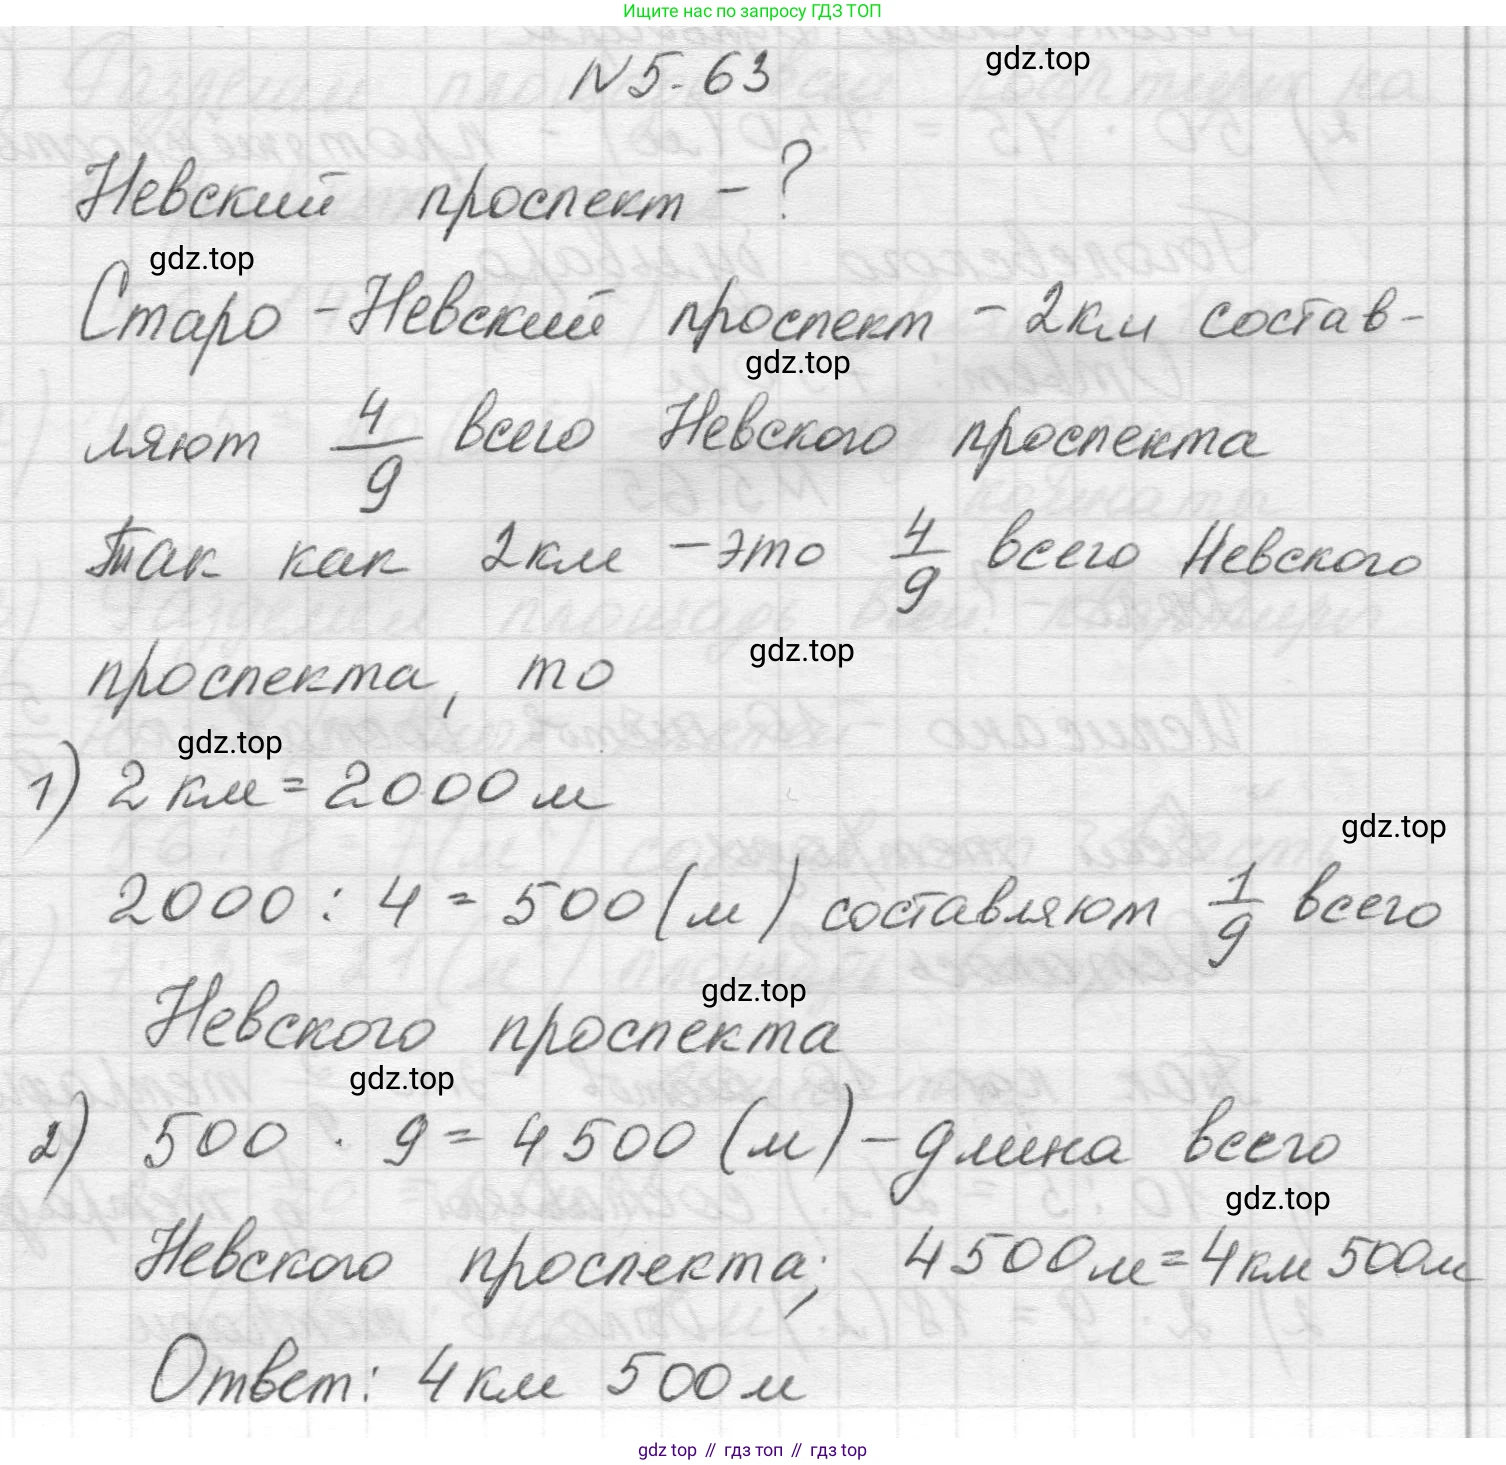 Ищите нас по запросу ГДЗ ТОП
N 5.63
gdz.top
Невский проспект - ?
gdz.top
Старо-Невский проспект - 2км состав-
gdz.top
ляют 4/9 всего Невского проспекта
так как 2км - это 4/9 всего Невского
проспекта, то
gdz.top
gdz.top
1) 2 км = 2000 м
gdz.top
2000 : 4 = 500 (м) составляют 1/9 всего
Невского проспекта
gdz.top
gdz.top
2) 500 · 9 = 4500 (м) - длина всего
gdz.top
Невского проспекта; 4500м = 4км 500м
Ответ: 4 км 500 м
gdz top // гдз топ // гдз top